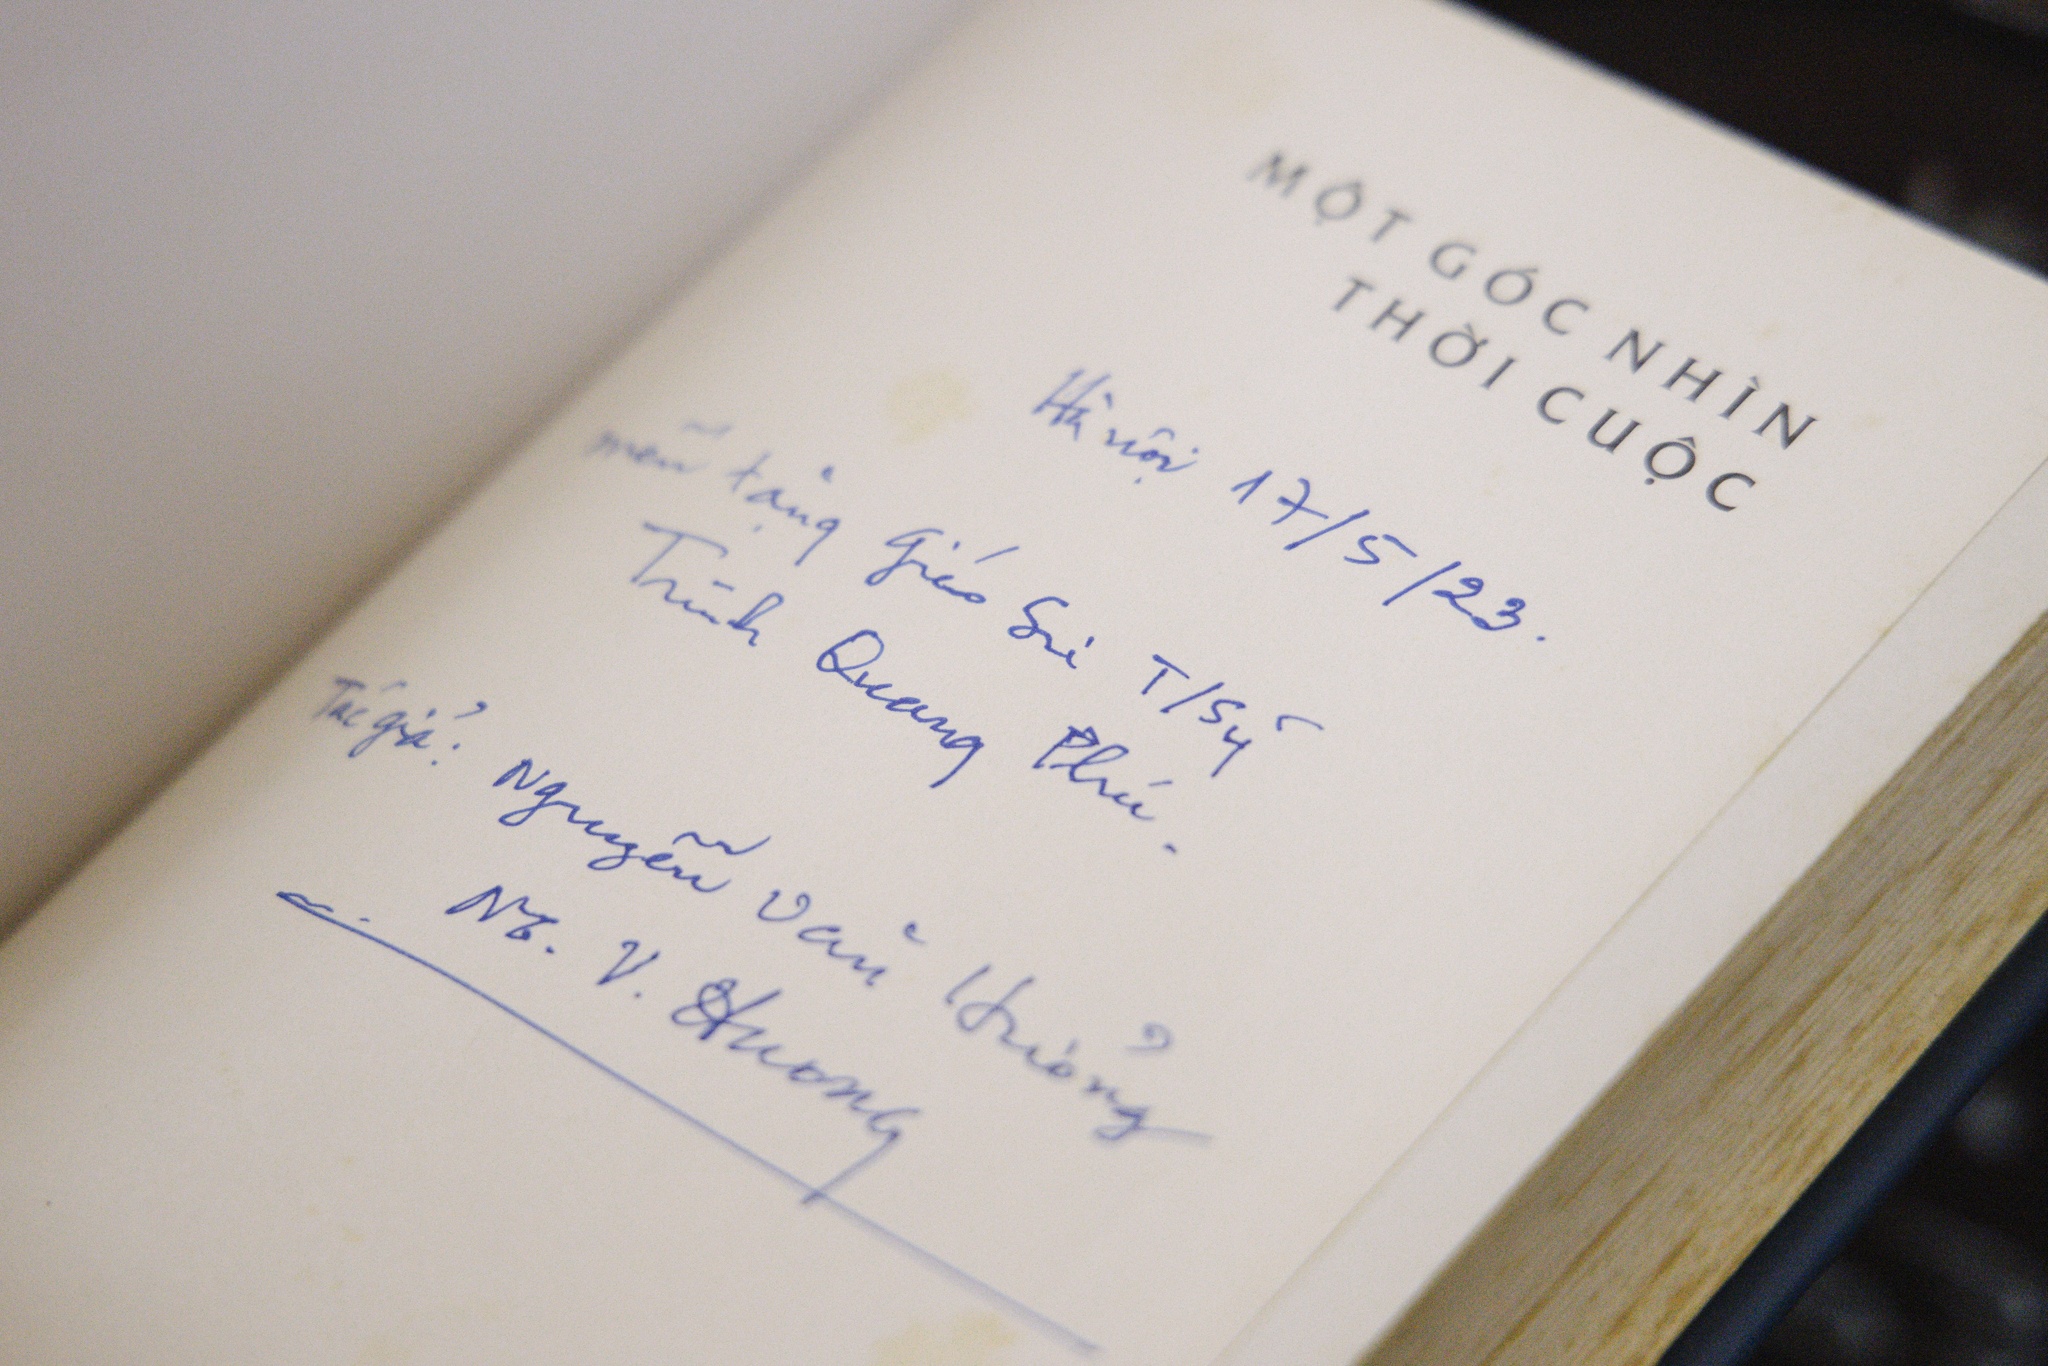 MỘT GÓC NHÌN
THỜI CUỘC
Hà nội 17/5/23.
mến tặng Giáo Sư T/Sỹ
Trình Quang Phú.
Tác giả: Nguyễn Văn Hưởng
Ng. V. Huong